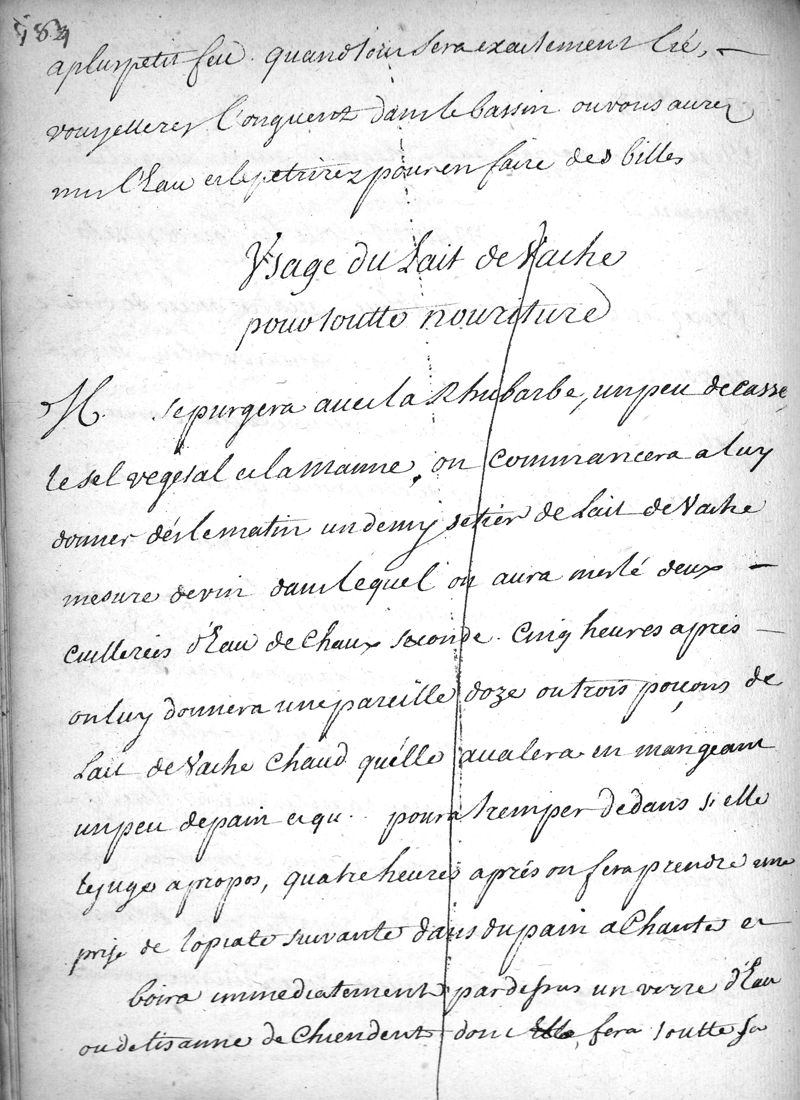 a plus petit feu. quand tout sera exactement lié, –
vous jetterez l'onguent dans le bassin ou vous aurez
mis l'Eau et le petrirez pour en faire des billes
Usage du Lait de Vache
pour toutte nouriture
M. se purgera avec la Rhubarbe, un peu de casse,
le sel vegetal et la manne, on commancera a luy
donner dés le matin un demy setier de Lait de Vache
mesure de vin dans lequel on aura meslé deux –
cuillerées d'Eau de Chaux seconde. Cinq heures aprés –
on luy donnera une pareille doze ou trois poiçons de
Lait de Vache Chaud qu'elle avalera en mangeant
un peu de pain et qu.. poura tremper dedans si elle
le juge a propos, quatre heures aprés on fera prendre une
prise de l'opiate suivante dans du pain a Chanter et
boira immediatement par dessus un verre d'Eau
ou de tisanne de Chiendent dont fera toutte sa